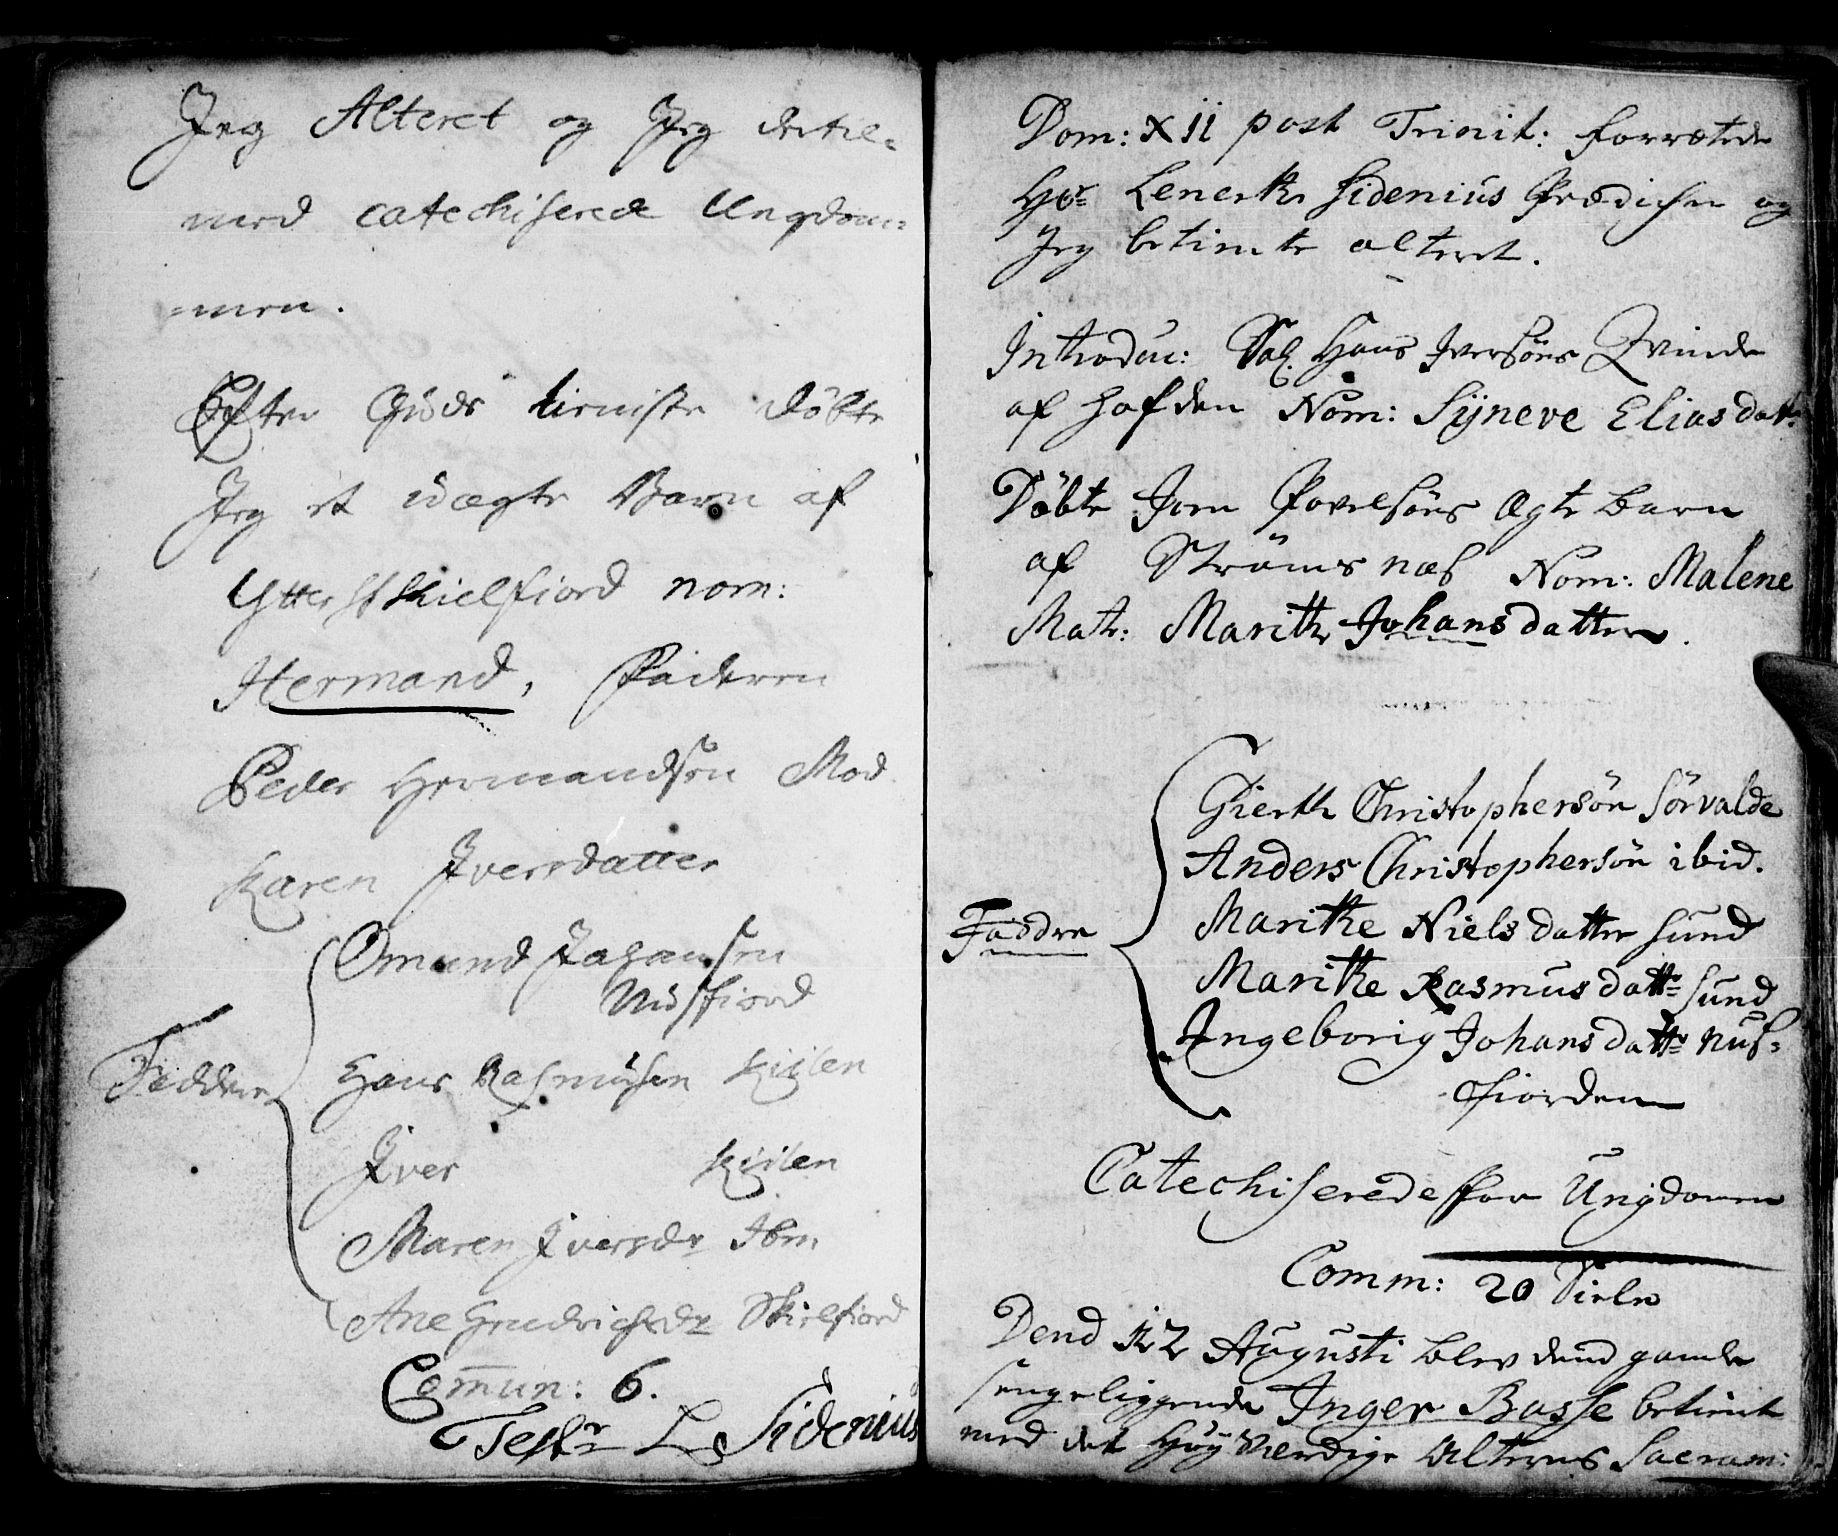 Jeg Alteret og Jeg dertil-
med catechiserede Ungdom-
-men.
Efter Guds tieniste döbte
Jeg et uægte Barn af
Ytterste Skielfiord nom:
Hermand, Faderen
Peder Hermandsen Mod
Karen Iversdatter
Omund Johansen
Nusfiord
Faddere
Hans Rasmusen Kiilen
Iver Kiilen
Maren Iversdr Ibm
Ane Hendrichsdr Skielfiord
Com̄un: 6.
Test: L Sidenius
Dom: XII post Trinit: forrætede
Hr Lenerth Sidenius Prædichen og
Jeg betiente alteret.
Introduc: Sal. Hans Iversöns Qvinde
af hafden Nom: Sÿneve Eliasdatt:
Döbte Joen Povelsöns Ægte barn
af Strömsnæs Nom: Malene
Matr: Marithe Johansdatter.
Gierth Christophersön Sörvalde
Anders Christophersön ibid.
Faddre
Marithe Nielsdatter Sund
Marithe Rasmusdatt: Sund
Ingeborig Johansdatt: Nus-
fiorden
Catechiserede for Ungdomen
Comm: 20 Siele
Dend 12 Augusti blev dend gamle
sengeliggende Inger Basse betient
med det HöyVærdige Alterens Sacram: